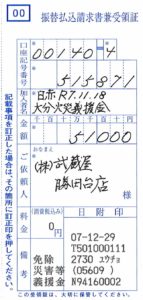 00
振替払込請求書兼受領証
口座記号番号
00140-4
515871
加入者名
日赤R7.11.18
大分火災義援会
金額
おなまえ
(株)武蔵屋
勝田台店
様
料金
(消費税込み)
0円
日附印
07-12-29
T501000111
2730 ユウチヨ
(05609 )
N94160002
備考
免除
災害等
義援金
記載事項を訂正した場合は、その箇所に訂正印を押してください。
この受領証は、大切に保管してください。